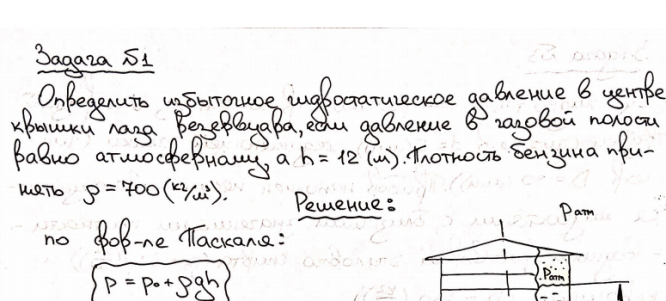 Задача №1
Определить избыточное гидростатическое давление в центре
крышки лаза резервуара, если давление в газовой полости
равно атмосферному, а h = 12 (м). Плотность бензина при-
нять ρ = 700 (кг/м³).
Решение:
Pатм
по фор-ле Паскаля:
Pатм
P = P₀ + ρgh